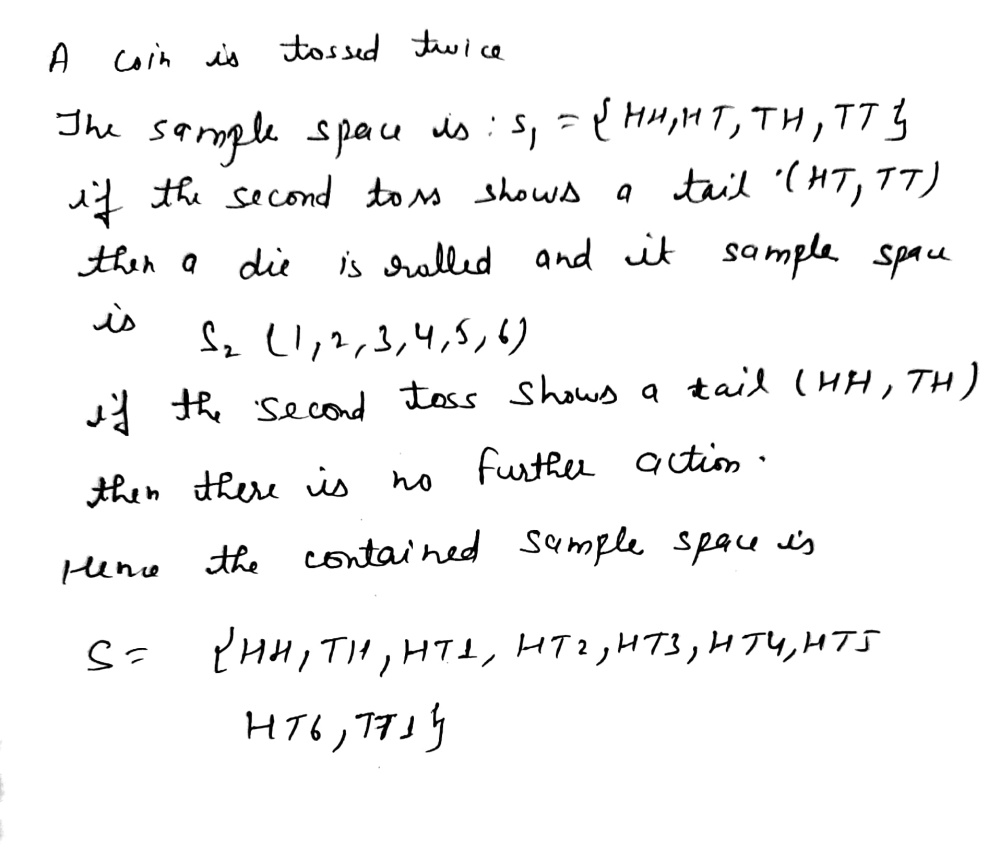 A coin is tossed twice
The sample space is : S₁ = { HH, HT, TH, TT }
if the second toss shows a tail (HT, TT)
then a die is rolled and it sample space
is S₂ (1, 2, 3, 4, 5, 6)
if the second toss shows a tail (HH, TH)
then there is no further action.
Hence the contained sample space is
S = {HH, TH, HT1, HT2, HT3, HT4, HT5
HT6, TT1}